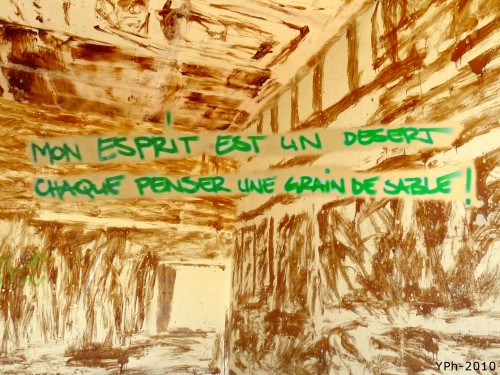 MON ESPRIT EST UN DESERT
CHAQUE PENSER UNE GRAIN DE SABLE !
YPh-2010